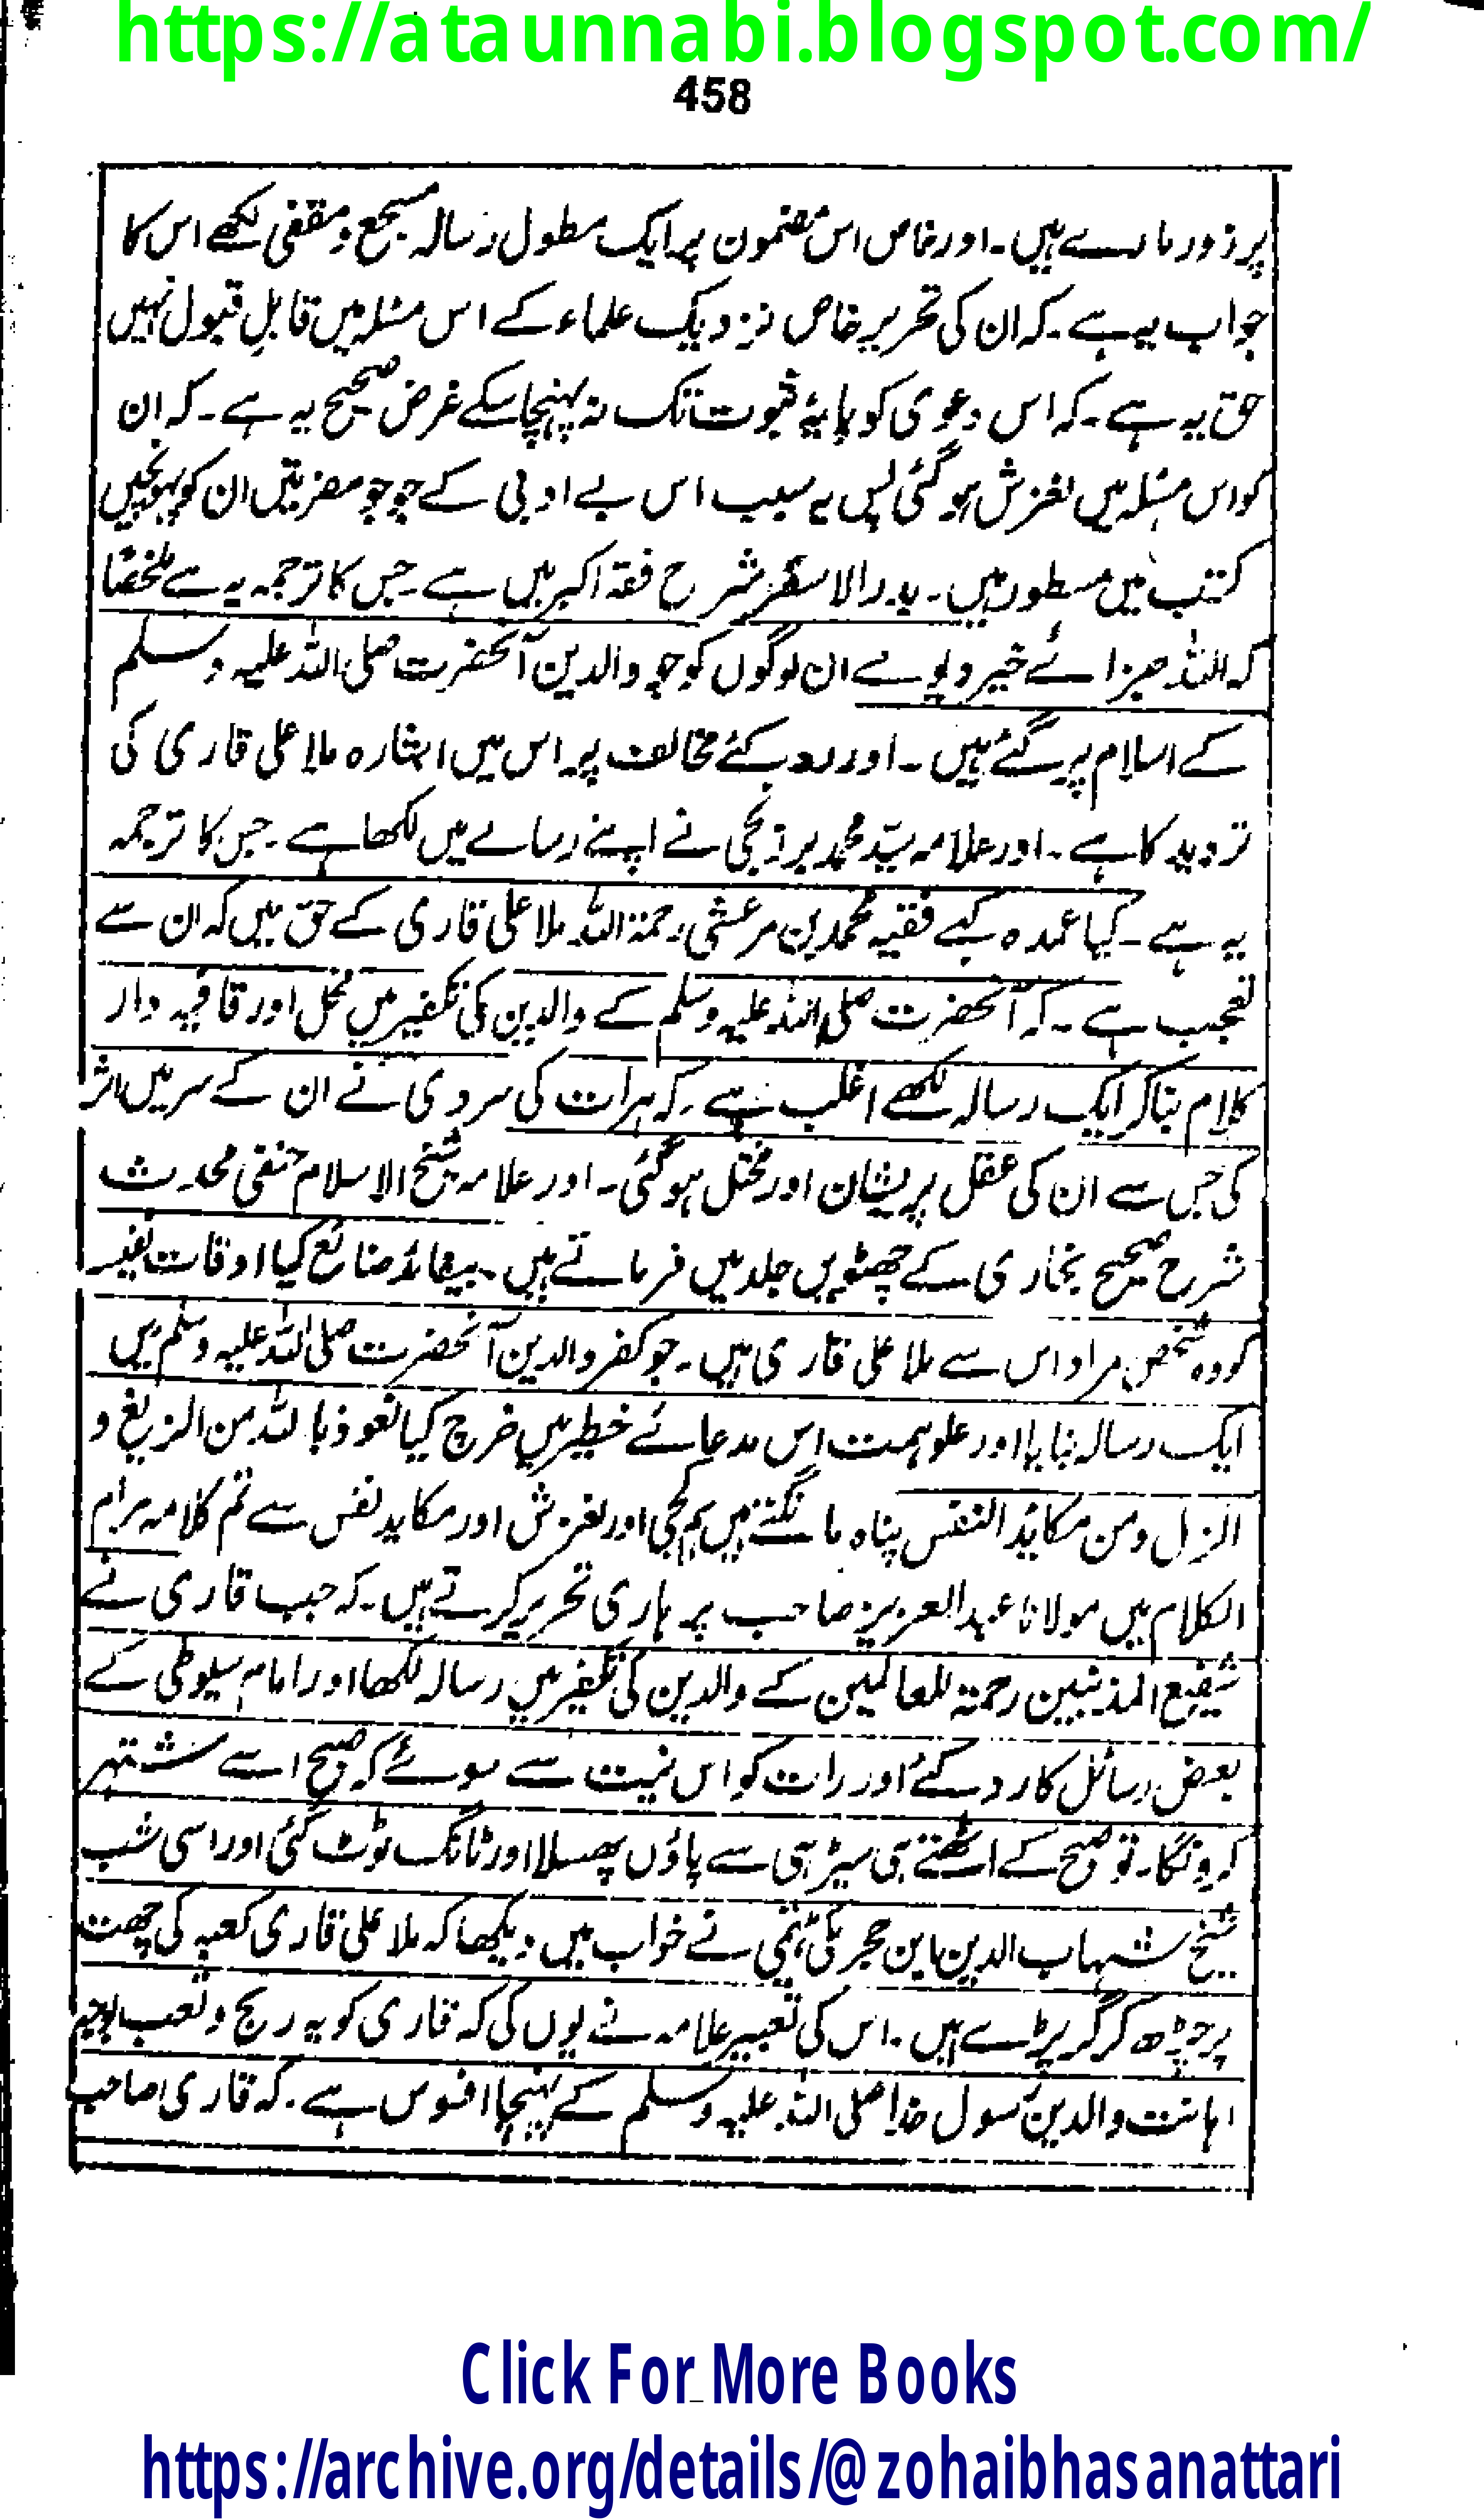 https://ataunnabi.blogspot.com/
458
پر زور مارے ہیں۔ اور خاص اس مضمون پر ایک مطول رسالہ مسجع و مقفی لکھے اس کا
جواب یہ ہے۔ کہ ان کی تحریر خاص نزدیک علماء کے اس مسئلہ میں قابلِ قبول نہیں
حق یہ ہے۔ کہ اس دعوی کو پایۂ ثبوت تک نہ پہنچا سکے غرض صحیح یہ ہے۔ کہ ان
کو اس مسئلہ میں لغزش ہو گئی پس بہ سبب اس بے ادبی کے جو جو مضرتیں ان کو پہونچیں
کتب میں مسطور ہیں۔ شرح فقہ اکبر میں ہے۔ جس کا ترجمہ یہ ہے ملخصًا
کہ اللہ جزائے خیر دیوے ان لوگوں کو جو والدین آنحضرت صلی اللہ علیہ وسلم
کے اسلام پر گئے ہیں۔ اور رد کئے مخالف پر اس میں اشارہ ملا علی قاری کی
تردید کا ہے۔ اور علامہ سیّد محمد برزنجی نے اپنے رسالے میں لکھا ہے۔ جس کا ترجمہ
یہ ہے۔ کیا عمدہ کہے فقیہ محمد بن مرعشی رحمۃ اللہ ملا علی قاری کے حق میں کہ ان سے
تعجب ہے۔ کہ آنحضرت صلی اللہ علیہ وسلم کے والدین کی تکفیر میں مخل اور قافیہ دار
کلام بنا کر ایک رسالہ لکھے اغلب ہے۔ کہ ہرات کی سردی نے ان کے سر میں اثر
کی جس سے ان کی عقل پریشان اور مختل ہو گئی۔ اور علامہ شیخ الاسلام حنفی محدث
شرح صحیح بخاری کے چھٹویں جلد میں فرماتے ہیں۔ بیفائدہ ضائع کیا اوقات نفیسہ
کو وہ شخص مراد اس سے ملا علی قاری ہیں۔ جو کفر والدین آنحضرت صلی اللہ علیہ وسلم میں
ایک رسالہ بنایا اور علو ہمت اس مدعائے خطیر میں خرچ کیا نعوذ باللہ من الزیغ و
الزلل ومن مکائد النفس پناہ مانگتے ہیں ہم کجی اور لغزش اور مکاید نفس سے تم کلامہ مرام
الکلام میں مولانا عبدالعزیز صاحب پرہاری تحریر کرتے ہیں۔ کہ جب قاری نے
شفیع المذنبین رحمۃ للعالمین کے والدین کی تکفیر میں رسالہ لکھا اور امام سیوطی کے
بعض رسائل کا رد کئے اور رات کو اس نیت سے سوئے کہ صبح اسے مشتہر
کرونگا۔ تو صبح کے اٹھتے ہی سیڑہی سے پاؤں پھسلا اور ٹانگ ٹوٹ گئی اور اسی شب
شیخ شہاب الدین ابن حجر مکی نے خواب میں دیکھا کہ ملا علی قاری کعبہ کی چھت
پر چڑھ کر گر پڑے ہیں۔ اس کی تعبیر علامہ نے یوں کی کہ قاری کو یہ رنج و تعب بوجہ
اہانت والدین رسول خدا صلی اللہ علیہ وسلم کے پہنچا افسوس ہے۔ کہ قاری صاحب
Click For More Books
https://archive.org/details/@zohaibhasanattari